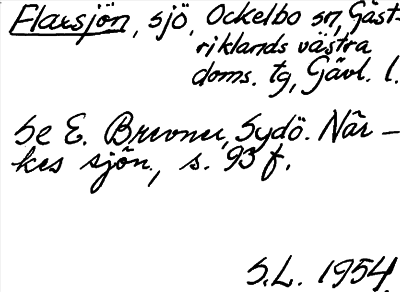 Flarsjön, sjö, Ockelbo sn, Gäst-
riklands västra
doms. tg, Gävl. l.
Se E. Brevner, Sydö. När-
kes sjön., s. 93 f.
S.L. 1954.